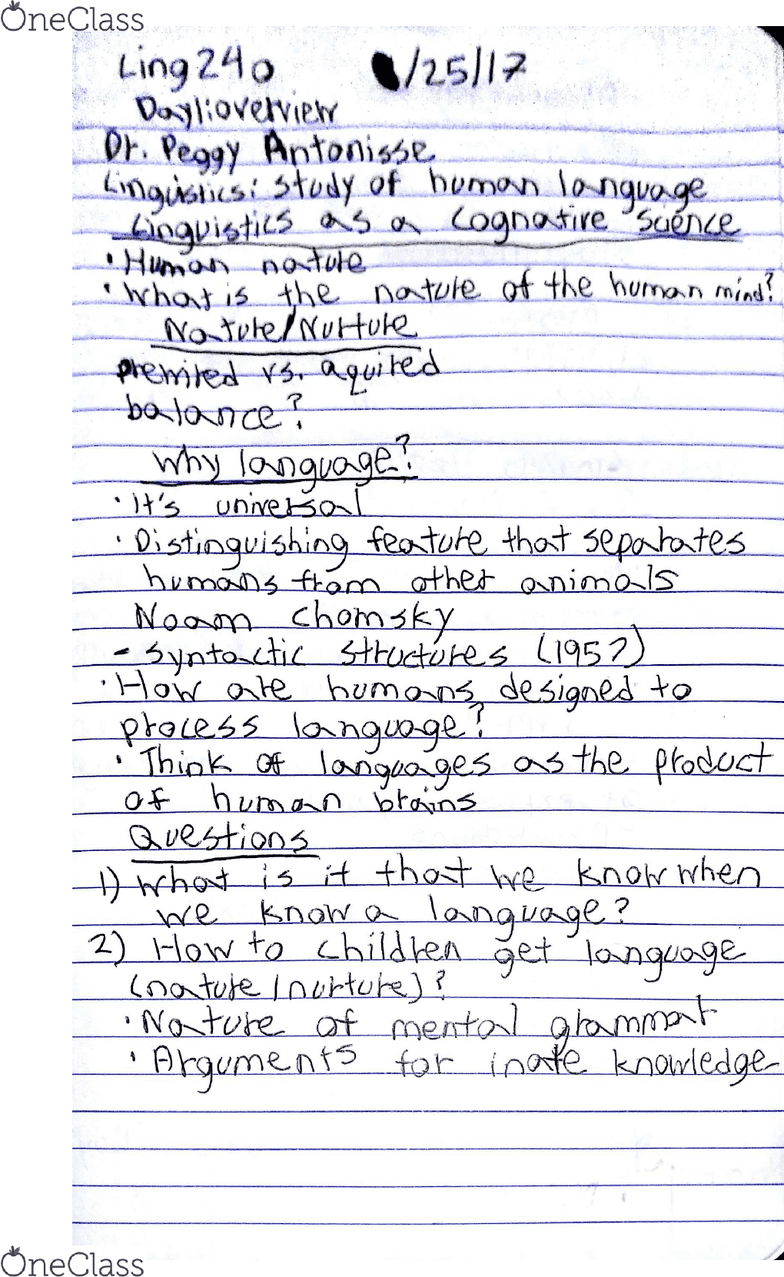 OneClass
Ling 240 /25/17
Day 1: overview
Dr. Peggy Antonisse
Linguistics: study of human language
Linguistics as a Cognative Science
• Human nature
• What is the nature of the human mind?
Nature/Nurture
prewired vs. aquired
balance?
Why language?
• It's universal
• Distinguishing feature that separates
humans from other animals
Noam Chomsky
- Syntactic structures (1957)
• How are humans designed to
process language?
• Think of languages as the product
of human brains
Questions
1) What is it that we know when
we know a language?
2) How to children get language
(nature/nurture)?
• Nature of mental grammar
• Arguments for inate knowledge
OneClass